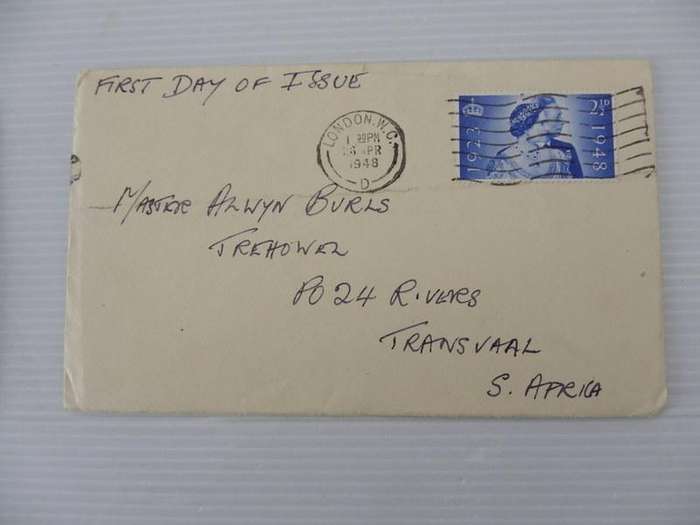 FIRST DAY OF ISSUE
LONDON. W.C.
PM
26 APR
1948
D
1923
2½D
1948
MASTER ALWYN BURLS
TREHOWEL
PO 24 RIVERS
TRANSVAAL
S. AFRICA